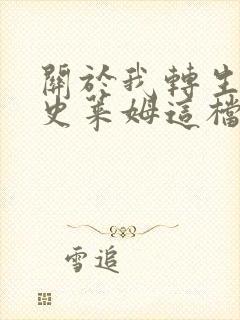 關於我轉生
史萊姆這檔
雪追